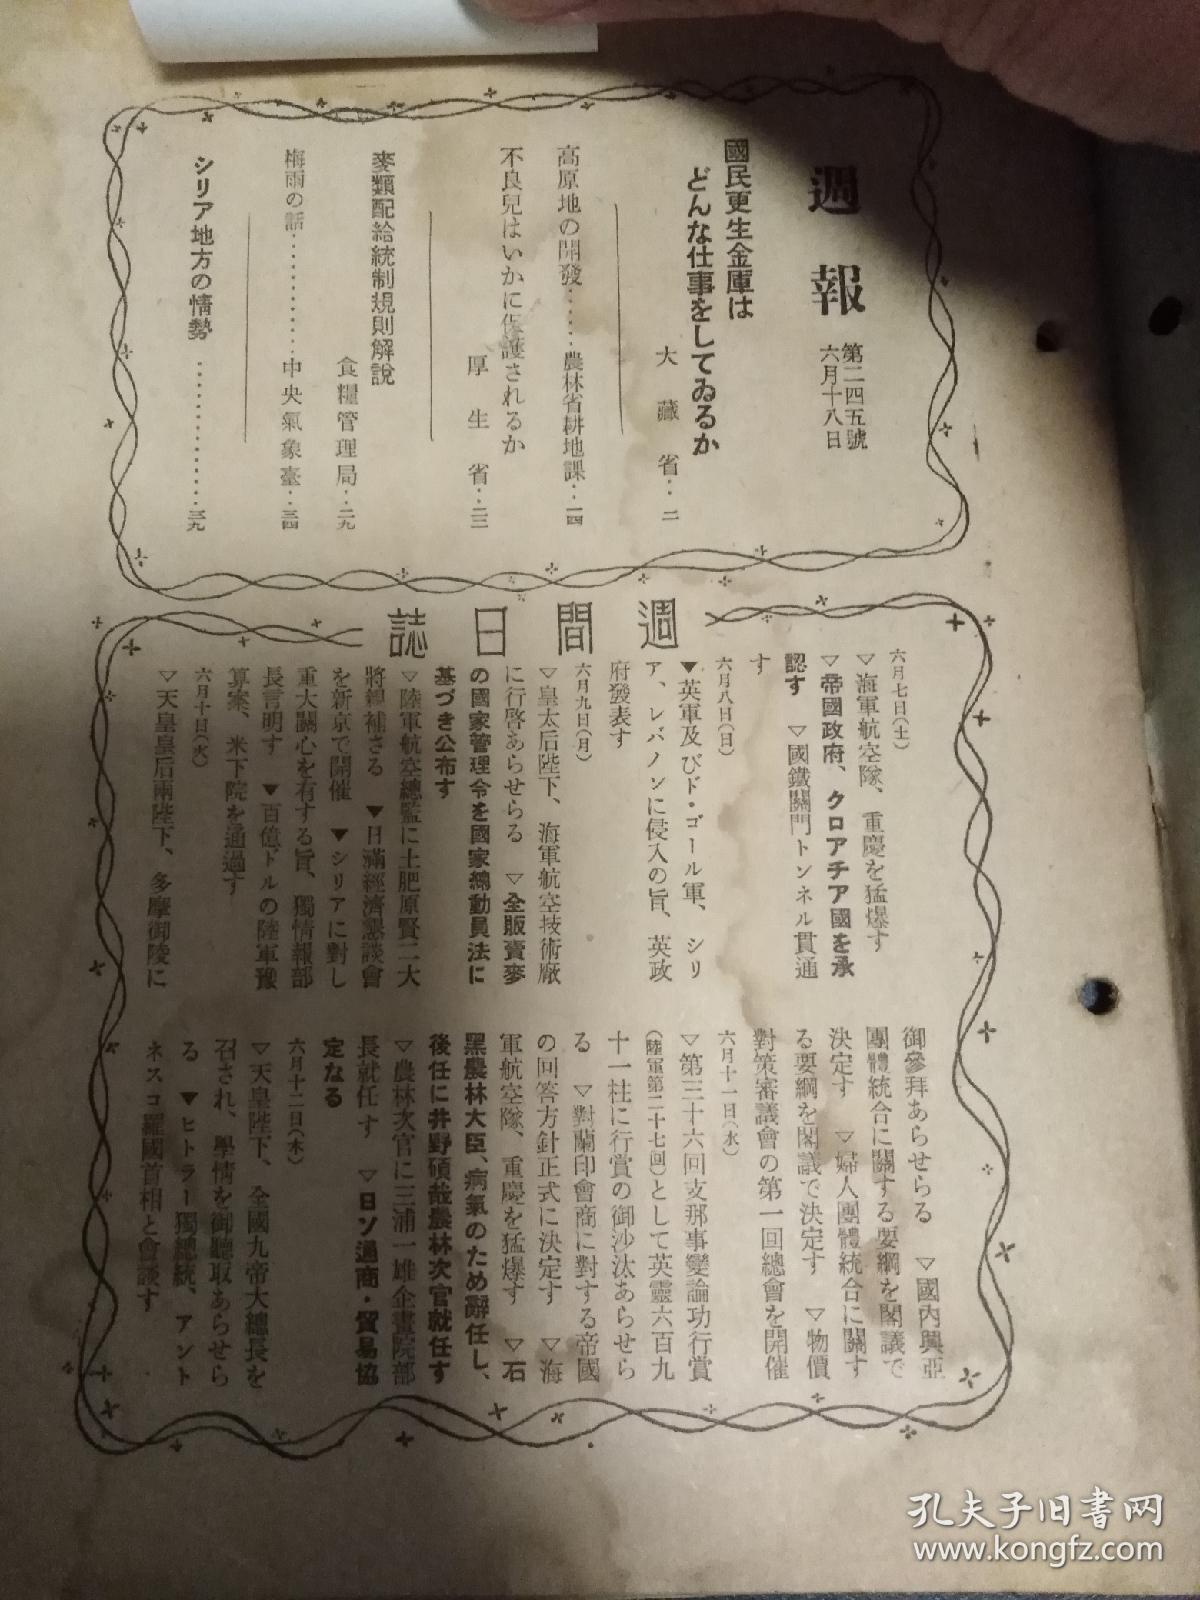 週報
第二四五號
六月十八日
國民更生金庫は
どんな仕事をしてゐるか
大藏省‥二
高原地の開發‥‥‥農林省耕地課‥一四
不良兒はいかに保護されるか
厚生省‥二三
麥類配給統制規則解說
食糧管理局‥二九
梅雨の話‥‥‥‥‥‥中央氣象臺‥三四
シリア地方の情勢‥‥‥‥‥‥‥三九
週間日誌
六月七日(土)
▽海軍航空隊、重慶を猛爆す
▽帝國政府、クロアチア國を承
認す ▽國鐵關門トンネル貫通
す
六月八日(日)
▼英軍及びド・ゴール軍、シリ
ア、レバノンに侵入の旨、英政
府發表す
六月九日(月)
▽皇太后陛下、海軍航空技術廠
に行啓あらせらる ▽全販賣麥
の國家管理令を國家總動員法に
基づき公布す
▽陸軍航空總監に土肥原賢二大
將親補さる ▼日滿經濟懇談會
を新京で開催 ▼シリアに對し
重大關心を有する旨、獨情報部
長言明す ▼百億ドルの陸軍豫
算案、米下院を通過す
六月十日(火)
▽天皇皇后兩陛下、多摩御陵に
御參拜あらせらる ▽國內興亞
團體統合に關する要綱を閣議で
決定す ▽婦人團體統合に關す
る要綱を閣議で決定す ▽物價
對策審議會の第一回總會を開催
六月十一日(水)
▽第三十六回支那事變論功行賞
(陸軍第二十七回)として英靈六百九
十一柱に行賞の御沙汰あらせら
る ▽對蘭印會商に對する帝國
の回答方針正式に決定す ▽海
軍航空隊、重慶を猛爆す ▽石
黑農林大臣、病氣のため辭任し、
後任に井野碩哉農林次官就任す
▽農林次官に三浦一雄企畫院部
長就任す ▽日ソ通商・貿易協
定なる
六月十二日(木)
▽天皇陛下、全國九帝大總長を
召され、學情を御聽取あらせら
る ▼ヒトラー獨總統、アント
ネスコ羅國首相と會談す
孔夫子旧书网
www.kongfz.com